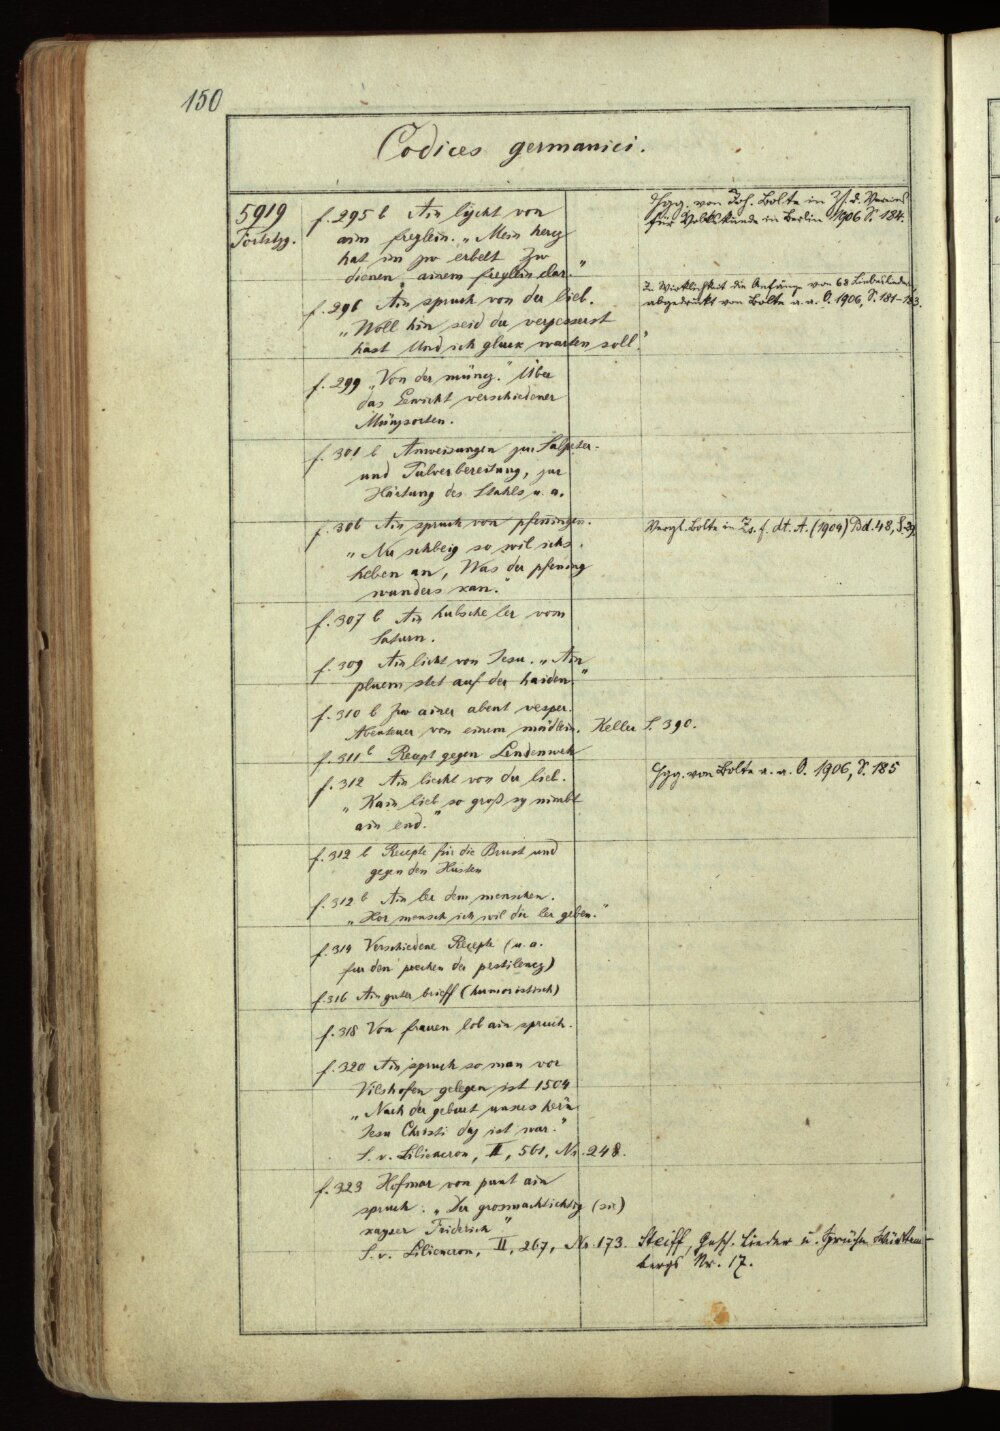 150
Codices germanici.
5919
Fortsetzg.
f. 295 b Ain lyecht von
aim freylein. „Mein hercz
hat im zw erbelt Zw
dienen ainem freylein clar."
Hgg. von Joh. Bolte in Zs. d. Vereins
für Volkskunde in Berlin 1906 S. 184.
f. 296 Ain spruch von der lieb.
„Woll hin seid du vergesserst
hast Und ich gluck warten soll."
In Wirklichkeit die Anfänge von 68 Liebesliedern,
abgedruckt von Bolte a. a. O. 1906, S. 181–183.
f. 299 „Von der müncz." Über
das Gewicht verschiedener
Münzsorten.
f. 301 b Anweisungen zur Salpeter-
und Pulverbereitung, zur
Härtung des Stahls u. a.
f. 306 Ain spruch von pfenningen.
„Nu schbeig so wil ichs
heben an, Was der pfening
wunders kan."
Vergl. Bolte in Zs. f. dt. A. (1904) Bd. 48, S. 29.
f. 307 b Ain hubsche ler vom
Saturn.
f. 309 Ain liebt von Jesu. „Ain
pluem stet auf der haiden."
f. 310 b Zw ainer abent vesper.
Abenteuer von einem mädlein. Keller S. 390.
f. 311 b Recept gegen Lendenweh
f. 312 Ain liecht von der lieb.
„Kain lieb so groß sy nimbt
ain end."
Hgg. von Bolte a. a. O. 1906, S. 185
f. 312 b Recepte für die Brust und
gegen den Husten
f. 312 b Ain ler dem menschen.
„Hor mensch ich wil dir ler geben."
f. 314 Verschiedene Recepte (u. a.
fur den prechen der pestilencz)
f. 316 Ain guter brieff (humoristisch)
f. 318 Von frauen lob ain spruch.
f. 320 Ain spruch so man vor
Vilshofen gelegen ist 1504
„Nach der geburt unsers hern
Jesu Christi daz ist war."
S. v. Liliencron, II, 561, Nr. 248.
f. 323 Hofmar von punt ain
spruch. „Der grosmachtichtig (sic)
kayser Friderich"
S. v. Liliencron, II, 267, Nr. 173. Steiff, Gesch. Lieder u. Sprüche Württem-
bergs Nr. 17.